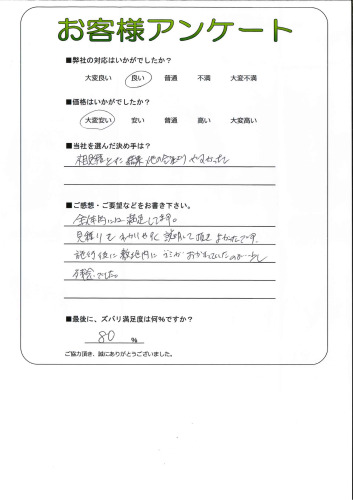 お客様アンケート
■弊社の対応はいかがでしたか？
大変良い 良い 普通 不満 大変不満
■価格はいかがでしたか？
大変安い 安い 普通 高い 大変高い
■当社を選んだ決め手は？
相見積とった結果 他の会社より やすかった
■ご感想・ご要望などをお書き下さい。
全体的には満足してます。
見積りも わかりやすく 説明して頂き よかったです。
施行後に敷地内に ゴミが おかれていたのが 少し
残念でした。
■最後に、ズバリ満足度は何％ですか？
80 %
ご協力頂き、誠にありがとうございました。